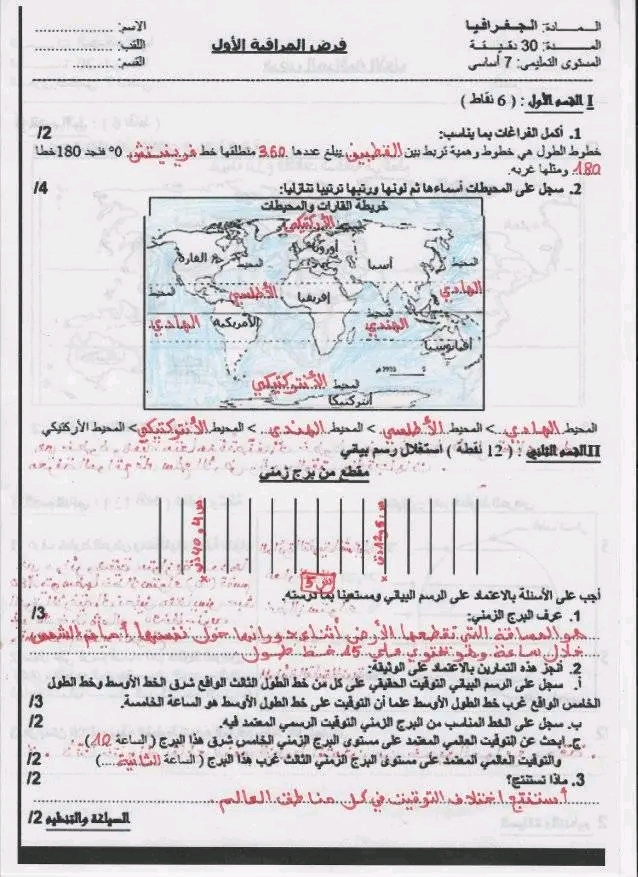 المــــادة: الجغرافيا
المـــدة: 30 دقيقة
المستوى التعليمي: 7 أساسي
فرض المراقبة الأول
الاسم: ..................
اللقب: ..................
القسم: ..................
I القسم الأول : ( 6 نقاط )
1. أكمل الفراغات بما يناسب: /2
خطوط الطول هي خطوط وهمية تربط بين القطبين يبلغ عددها 360 منطلقها خط قرينيتش 0° فنجد 180خطا
180 ومثلها غربه.
2. سجل على المحيطات أسماءها ثم لونها ورتبها ترتيبا تنازليا: /4
خريطة القارات والمحيطات
المحيط الأركتيكي
أوروبا
آسيا
القارة
المحيط
المحيط
المحيط الأطلسي
إفريقيا
المحيط الهادي
المحيط الهادي
الأمريكية
المحيط الهندي
أقيانوسيا
المحيط الأنتركتيكي
أنتركتيكا
المحيط الهادي > المحيط الأطلسي > المحيط الهندي > المحيط الأنتركتيكي > المحيط الأركتيكي
II القسم الثاني : ( 12 نقطة ) استغلال رسم بياني
مقطع من برج زمني
5س
أجب على الأسئلة بالاعتماد على الرسم البياني ومستعينا بما درسته.
1. عرف البرج الزمني: /3
هو المسافة التي تقطعها الأرض أثناء دورانها حول نفسها أمام الشمس
خلال ساعة وهو يحتوي على 15 خط طول
2. فنجز هذه التمارين بالاعتماد على الوثيقة:
أ. سجل على الرسم البياني التوقيت الحقيقي على كل من خط الطول الثالث الواقع شرق الخط الأوسط وخط الطول
الخامس الواقع غرب خط الطول الأوسط علما أن التوقيت على خط الطول الأوسط هو الساعة الخامسة. /3
ب. سجل على الخط المناسب من البرج الزمني التوقيت الرسمي المعتمد فيه. /2
ج. ابحث عن التوقيت العالمي المعتمد على مستوى البرج الزمني الخامس شرق هذا البرج ( الساعة 10 )
والتوقيت العالمي المعتمد على مستوى البرج الزمني الثالث غرب هذا البرج ( الساعة الثانية ) /2
3. ماذا تستنتج؟ /2
أستنتج اختلاف التوقيت في كل مناطق العالم.
الصياغة والتنظيم /2